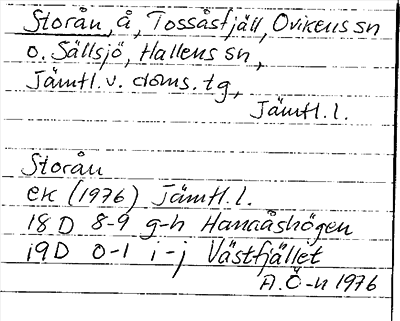 Storån, å, Tossåsfjäll, Ovikens sn
o. Sällsjö, Hallens sn,
Jämtl. v. doms. tg,
Jämtl. l.
Storån
ek (1976) Jämtl. l.
18 D 8-9 g-h Hanaåshögen
19D 0-1 i-j Västfjället
A.Ö-n 1976